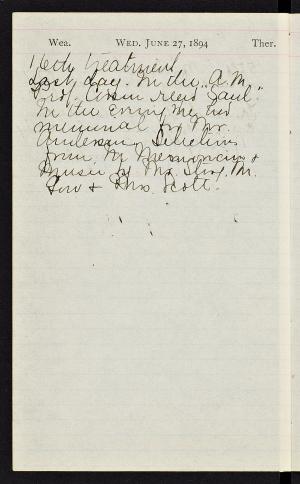 Wea. WED. JUNE 27, 1894 Ther.
Hetty treatment
Last day. In the "A.M."
Prof. read "Saul"
In the Evening
memorial for Mr.
Anderson. Selections
from
music by Mrs. Mr.
& Mrs. Scott.